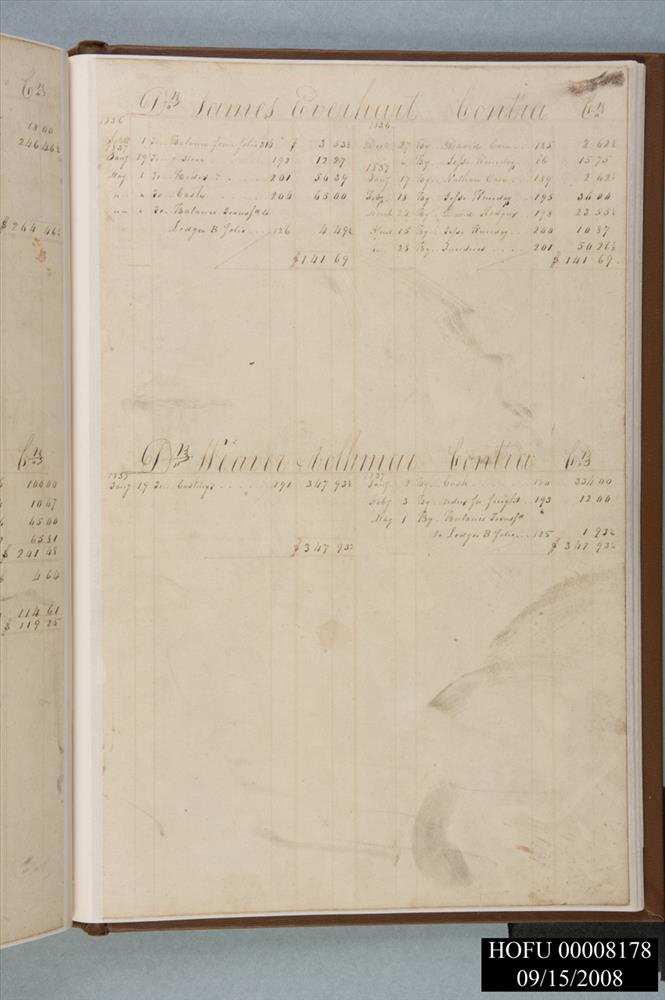 Cr
18 00
246 46½
$ 264 46½
Cr
100 00
10 67
65 00
65 81
$ 241 48
$ 4 64
114 61
$ 119 25
Dr James Everhart Contra Cr
1836
1 To Balance from folio 214 $ 3 53½
1837
Jany 17 To " Store 192 12 27
May 1 To 201 56 39
" " To Cash 204 65 00
" " To Balance Transfd
Ledger B Folio 126 4 49½
$141 69
1836
Decr 27 By David Care 185 2 62½
1837
" By Jesse Kimsey 86 15 75
Jany 17 By Nathan Care 189 2 62½
Feby 18 By Jesse Kimsey 195 36 00
March 22 By David Hodges 198 23 55½
April 15 By Jesse Kimsey 200 10 87
" 28 By Sundries 201 50 26½
$141 69
Dr Weaver Contra Cr
1837
Jany 19 To Castings 191 347 93½
$347 93½
1837
Jany By Cash 334 00
Feby 3 By order for freight 193 12 00
May 1 By Balance Transfd
to Ledger B Folio 125 1 93½
$347 93½
HOFU 00008178
09/15/2008